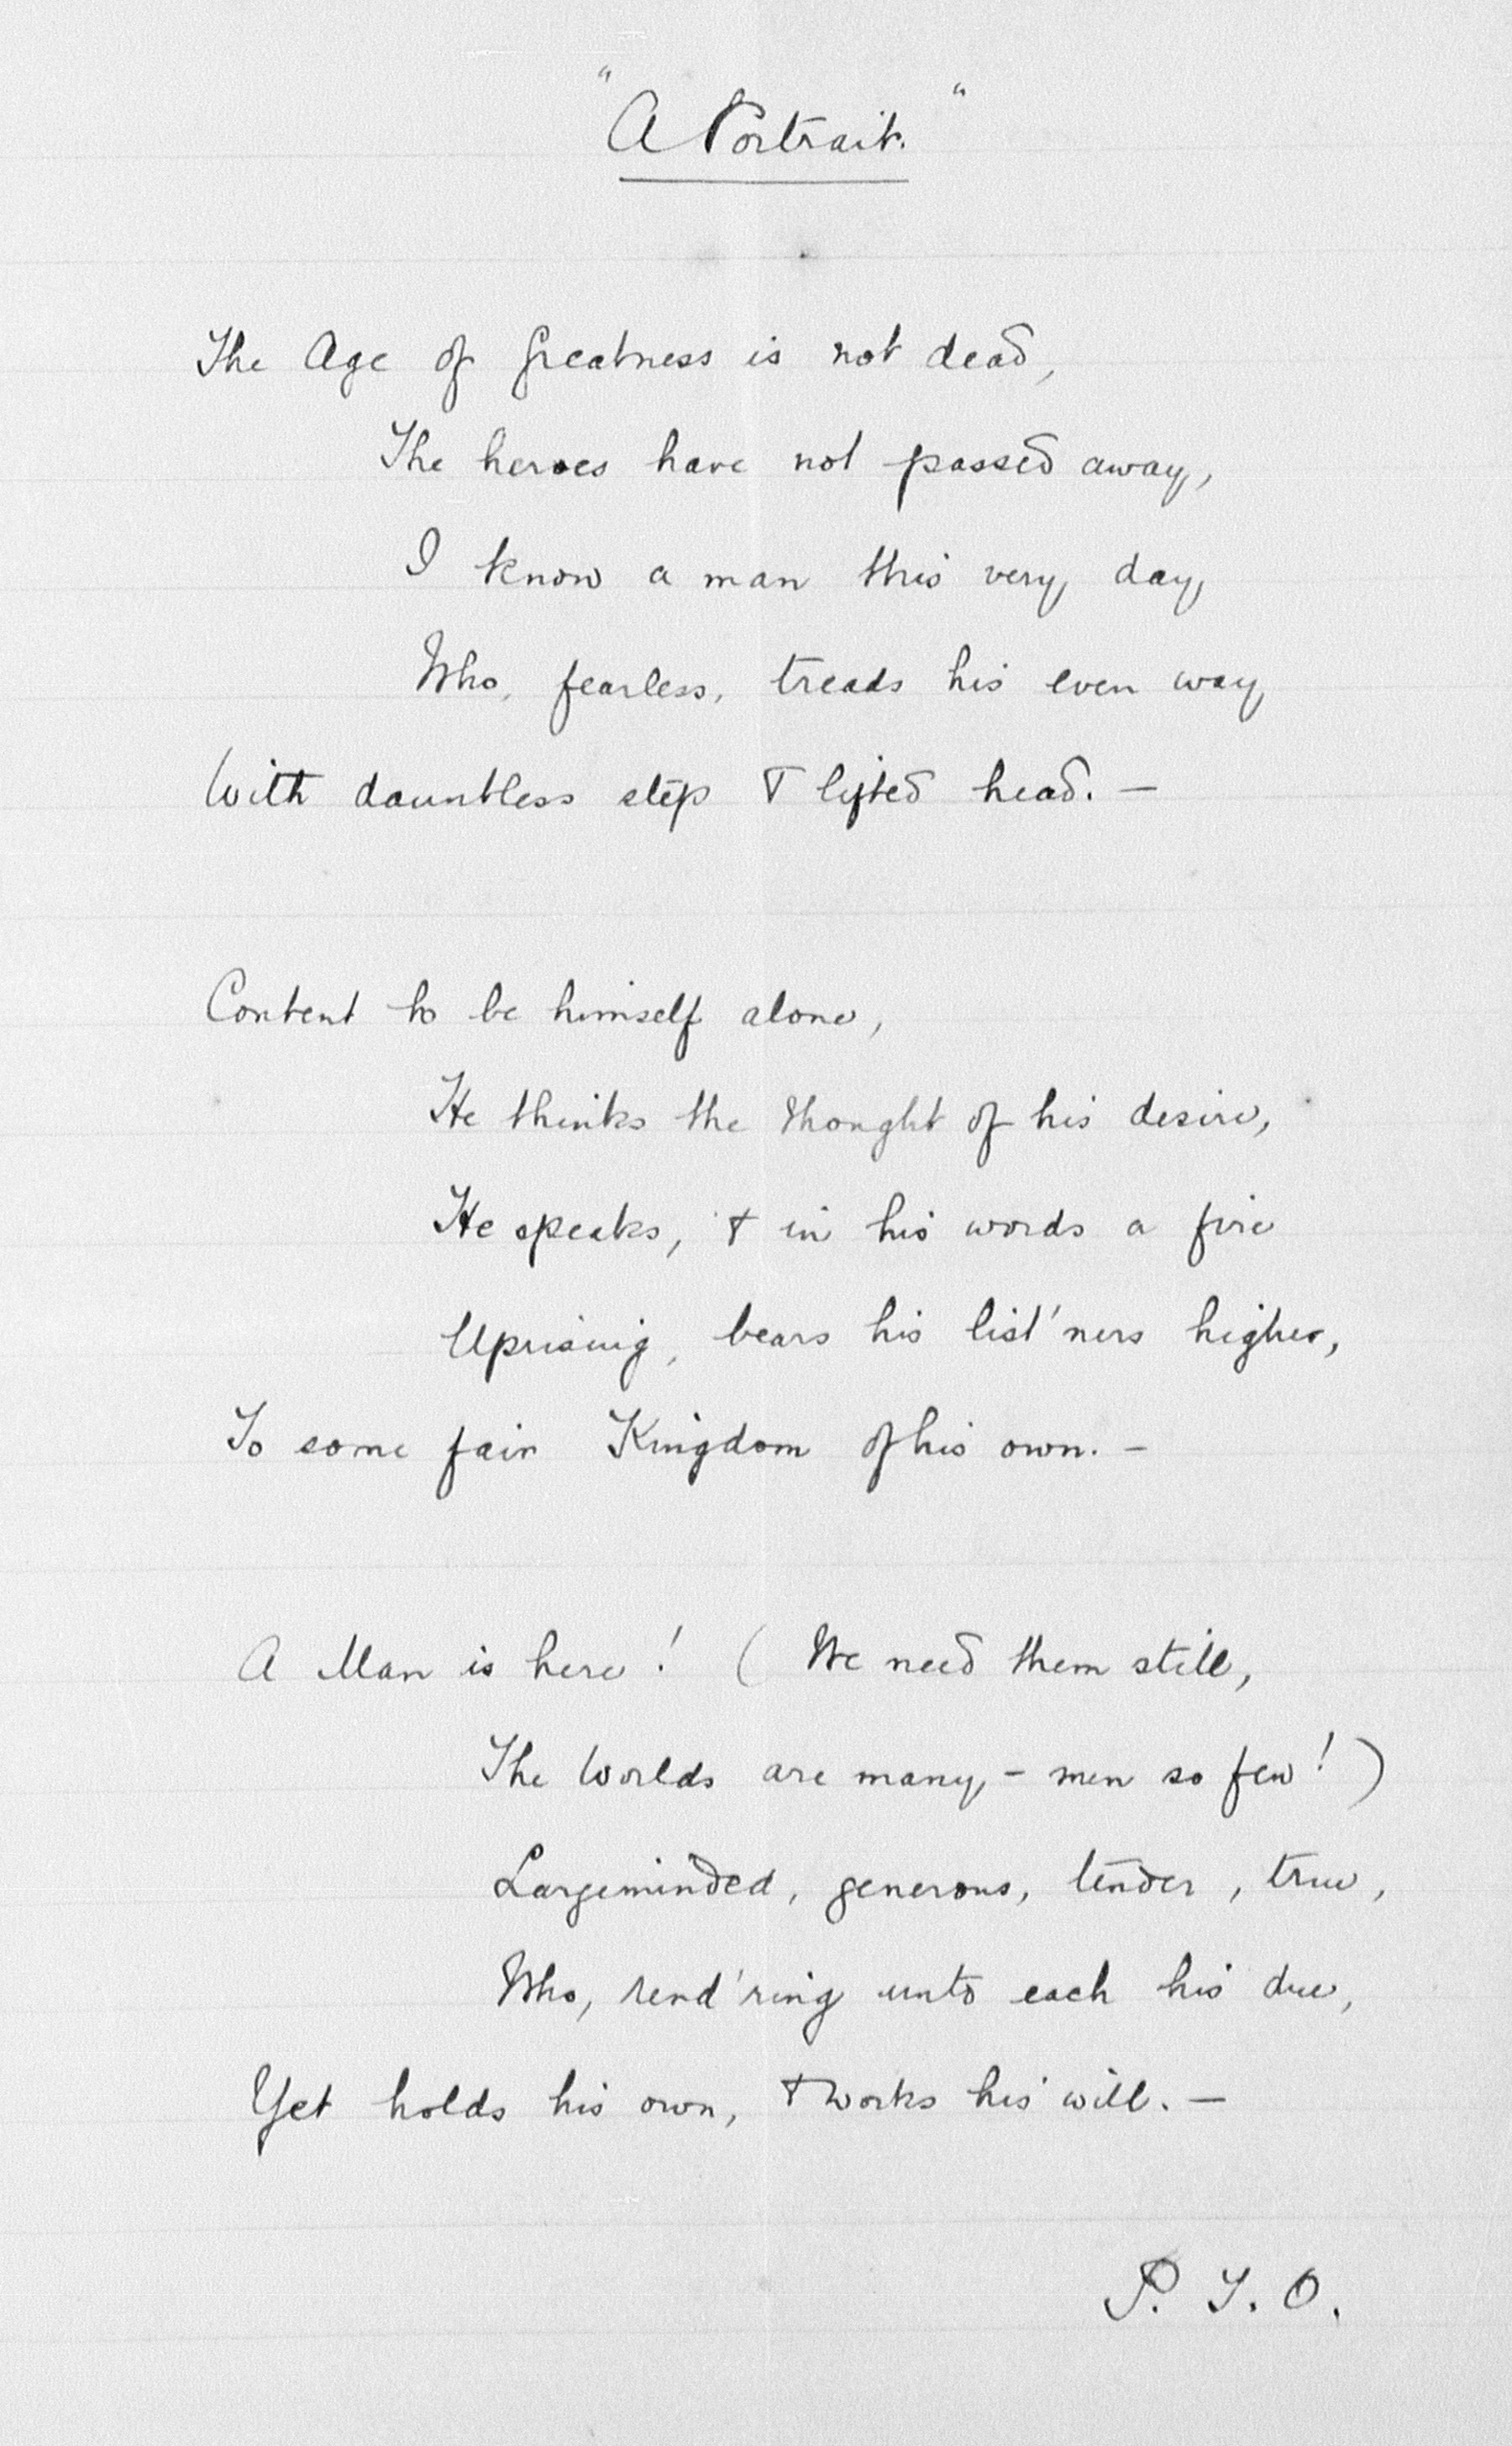 "A Portrait."
The Age of Greatness is not dead,
The heroes have not passed away,
I know a man this very day,
Who, fearless, treads his even way
With dauntless step & lifted head. —
Content to be himself alone,
He thinks the thought of his desire,
He speaks, & in his words a fire
Uprising, bears his list'ners higher,
To some fair Kingdom of his own. —
A Man is here! (We need them still,
The Worlds are many, – men so few!)
Largeminded, generous, tender, true,
Who, rend'ring unto each his due,
Yet holds his own, & works his will. —
P. T. O.